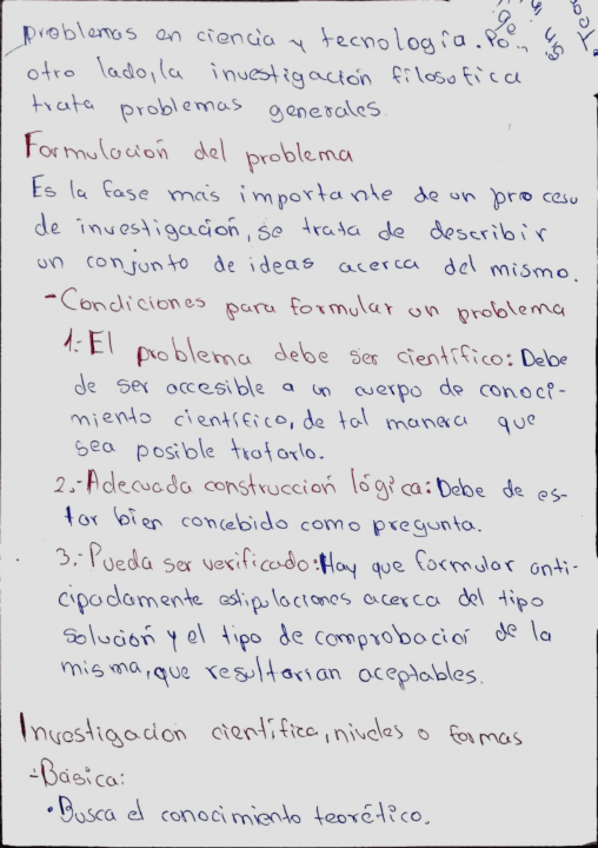 problemas en ciencia y tecnología. Po..
otro lado, la investigación filosofica
trata problemas generales.
Formulación del problema
Es la fase más importante de un proceso
de investigación, se trata de describir
un conjunto de ideas acerca del mismo.
-Condiciones para formular un problema
1.-El problema debe ser científico: Debe
de ser accesible a un cuerpo de conoci-
miento científico, de tal manera que
sea posible tratarlo.
2.-Adecuada construcción lógica: Debe de es-
tar bien concebido como pregunta.
3.-Pueda ser verificado: Hay que formular anti-
cipadamente estipulaciones acerca del tipo
solución y el tipo de comprobació de la
misma, que resultarían aceptables.
Investigación científica, niveles o formas
-Básica:
•Busca el conocimiento teorético.